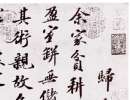 歸
余家貧耕
盈室缾無
其術親故多